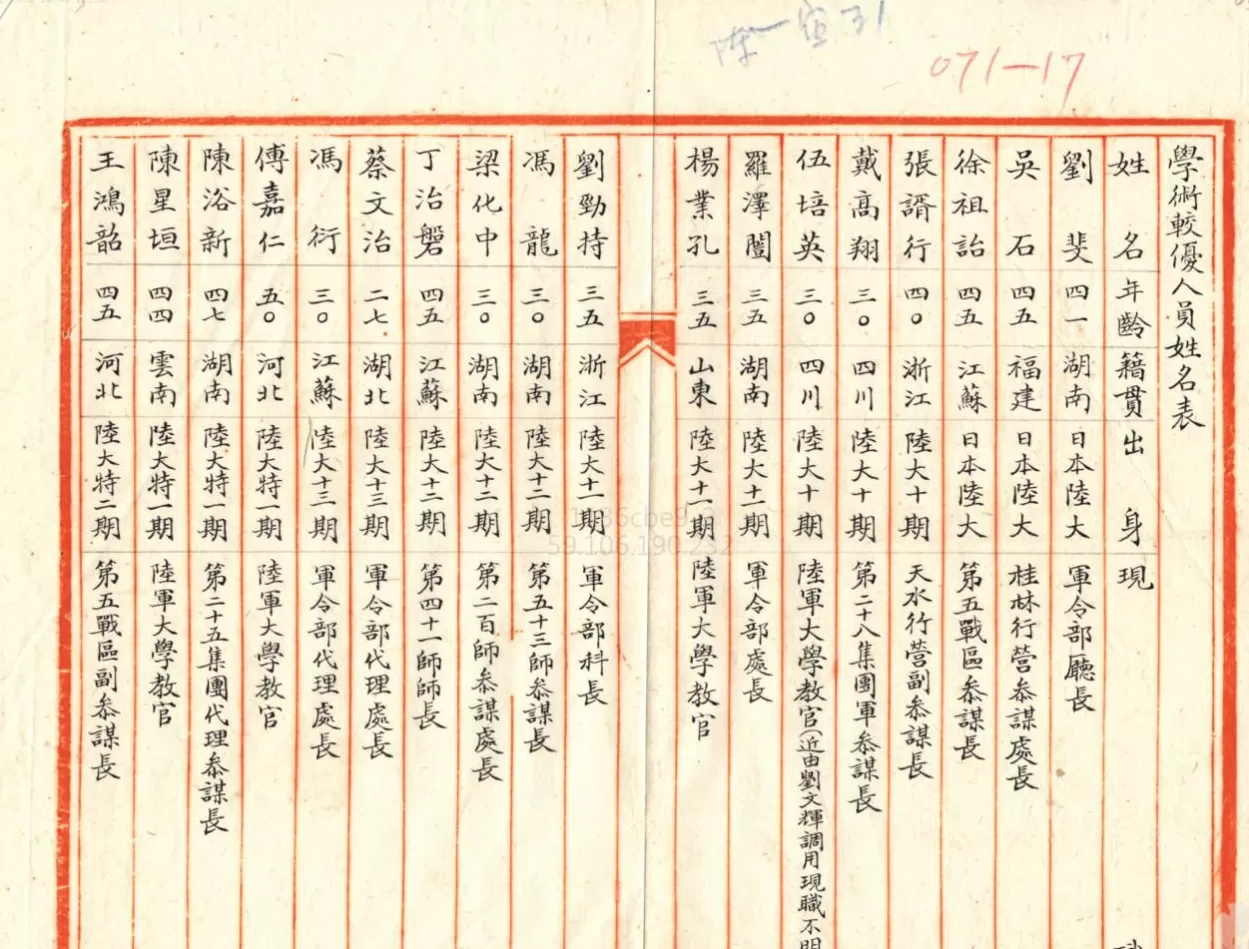 071-17
學術較優人員姓名表
姓 名 年齡 籍貫 出 身 現
劉 斐 四一 湖南 日本陸大 軍令部廳長
吳 石 四五 福建 日本陸大 桂林行營參謀處長
徐祖詒 四五 江蘇 日本陸大 第五戰區參謀長
張諝行 四〇 浙江 陸大十期 天水行營副參謀長
戴高翔 三〇 四川 陸大十期 第二十八集團軍參謀長
伍培英 三〇 四川 陸大十期 陸軍大學教官(近由劉文輝調用現職不明
羅澤闓 三五 湖南 陸大十一期 軍令部處長
楊業孔 三五 山東 陸大十一期 陸軍大學教官
劉勁持 三五 浙江 陸大十一期 軍令部科長
馮 龍 三〇 湖南 陸大十二期 第五十三師參謀長
梁化中 三〇 湖南 陸大十二期 第二百師參謀處長
丁治磐 四五 江蘇 陸大十二期 第四十一師師長
蔡文治 二七 湖北 陸大十三期 軍令部代理處長
馮 衍 三〇 江蘇 陸大十三期 軍令部代理處長
傅嘉仁 五〇 河北 陸大特一期 陸軍大學教官
陳浴新 四七 湖南 陸大特一期 第二十五集團代理參謀長
陳星垣 四四 雲南 陸大特一期 陸軍大學教官
王鴻韶 四五 河北 陸大特二期 第五戰區副參謀長
59.106.190.232